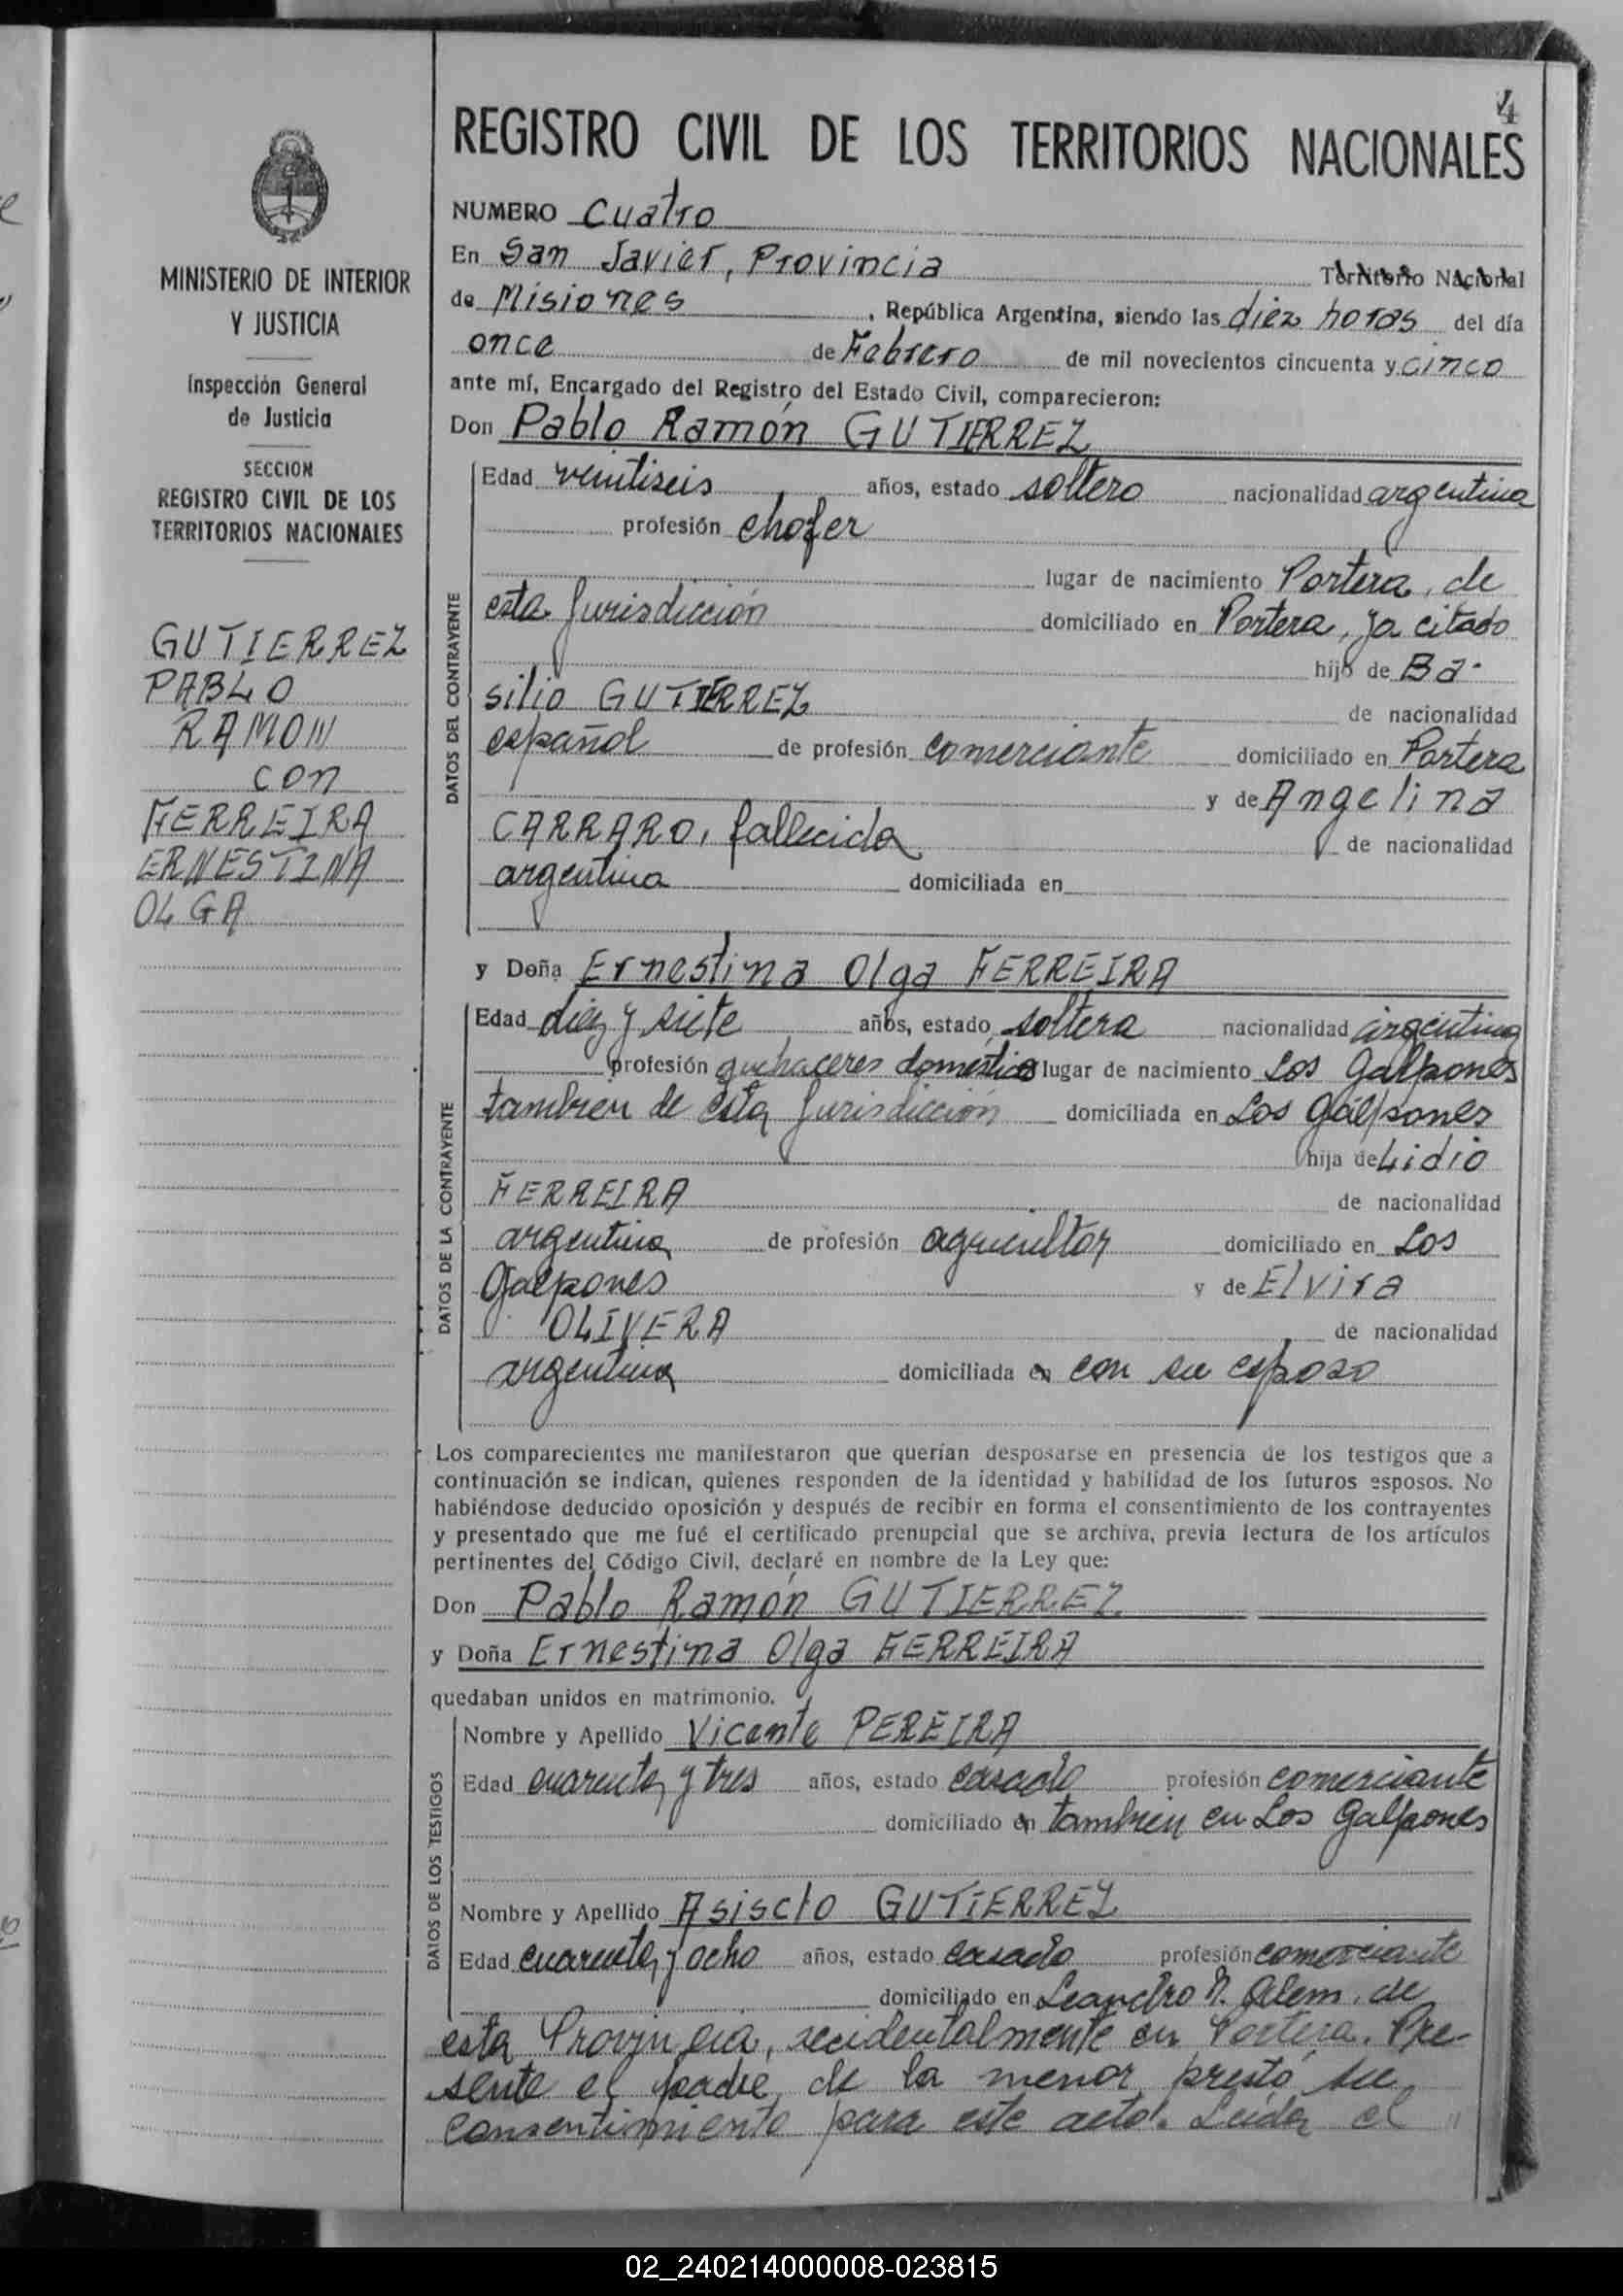 4
REGISTRO CIVIL DE LOS TERRITORIOS NACIONALES
NUMERO Cuatro
En San Javier, Provincia Territorio Nacional
de Misiones, República Argentina, siendo las diez horas del día
once de Febrero de mil novecientos cincuenta y cinco
ante mí, Encargado del Registro del Estado Civil, comparecieron:
Don Pablo Ramón GUTIERREZ
Edad veintiseis años, estado soltero nacionalidad argentina
profesión chofer
lugar de nacimiento Portera, de
esta Jurisdicción domiciliado en Portera, ya citado
hijo de Ba-
silio GUTIERREZ de nacionalidad
español de profesión comerciante domiciliado en Portera
y de Angelina
CARRARO, fallecida de nacionalidad
argentina domiciliada en
y Doña Ernestina Olga FERREIRA
Edad diez y siete años, estado soltera nacionalidad argentina
profesión quehaceres domésticos lugar de nacimiento Los Galpones
tambien de esta Jurisdicción domiciliada en Los Galpones
hija de Lidio
FERREIRA de nacionalidad
argentina de profesión agricultor domiciliado en Los
Galpones y de Elvira
OLIVERA de nacionalidad
argentina domiciliada en con su esposo
Los comparecientes me manifestaron que querían desposarse en presencia de los testigos que a
continuación se indican, quienes responden de la identidad y habilidad de los futuros esposos. No
habiéndose deducido oposición y después de recibir en forma el consentimiento de los contrayentes
y presentado que me fué el certificado prenupcial que se archiva, previa lectura de los artículos
pertinentes del Código Civil, declaré en nombre de la Ley que:
Don Pablo Ramón GUTIERREZ
y Doña Ernestina Olga FERREIRA
quedaban unidos en matrimonio.
Nombre y Apellido Vicente PEREIRA
Edad cuarenta y tres años, estado casado profesión comerciante
domiciliado en tambien en Los Galpones
Nombre y Apellido Asisclo GUTIERREZ
Edad cuarenta y ocho años, estado casado profesión comerciante
domiciliado en Leandro N. Alem, de
esta Provincia, accidentalmente en Portera. Pre-
sente el padre de la menor prestó su
consentimiento para este acto. Leida el
MINISTERIO DE INTERIOR
Y JUSTICIA
Inspección General
de Justicia
SECCION
REGISTRO CIVIL DE LOS
TERRITORIOS NACIONALES
GUTIERREZ
PABLO
RAMON
con
FERREIRA
ERNESTINA
OLGA
DATOS DEL CONTRAYENTE
DATOS DE LA CONTRAYENTE
DATOS DE LOS TESTIGOS
02_240214000008-023815